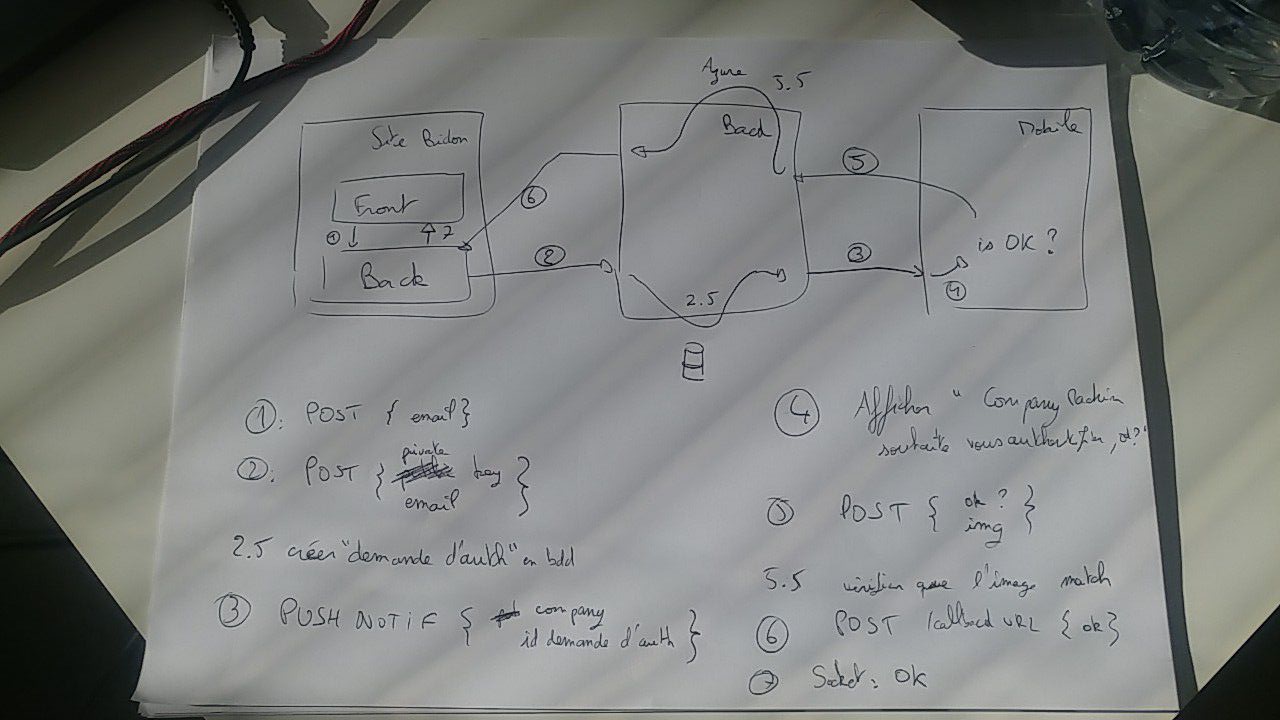 Azure
5.5
Site Bidon
Back
Mobile
Front
① 7
Back
⑥
②
2.5
⑤
③
is OK ?
④
①: POST { email }
②: POST { private key
email }
2.5 créer "demande d'auth" en bdd
③ PUSH NOTIF { company
id demande d'auth }
④ Afficher " Company Machin
souhaite vous authentifier, ok?"
⑤ POST { ok ?
img }
5.5 vérifier que l'image match
⑥ POST /callback URL { ok }
⑦ Socket: OK